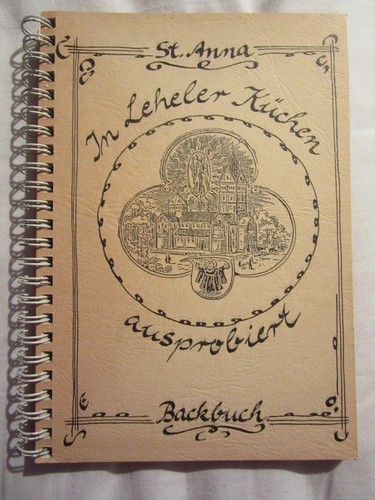 St. Anna
In Leheler Küchen
ausprobiert
Backbuch